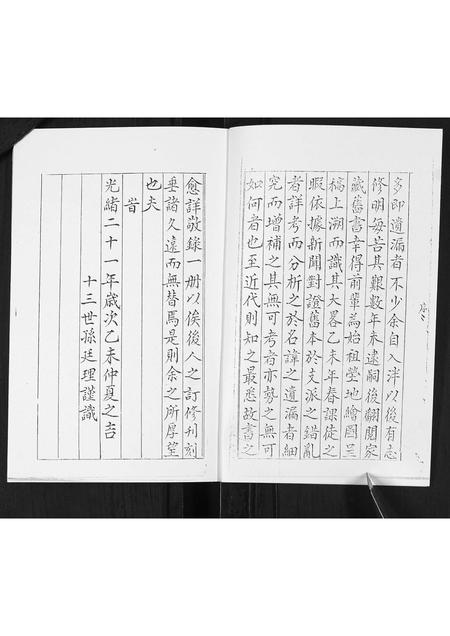 多即遺漏者不少余自入泮以後有志
修明每苦其艱數年未逮嗣後翻閱家
藏舊書幸得前輩為始祖塋地繪圖呈
稿上溯而識其大畧乙未年春課徒之
暇依據新聞對證舊本於支派之錯亂
者詳考而分析之於名諱之遺漏者細
究而增補之其無可考者亦勢之無可
如何者也至近代則知之最悉故書之
愈詳敬錄一册以俟後人之訂修刋刻
垂諸久遠而無替焉是則余之所厚望
也夫
旹
光緒二十一年歲次乙未仲夏之吉
十三世孫廷理謹識